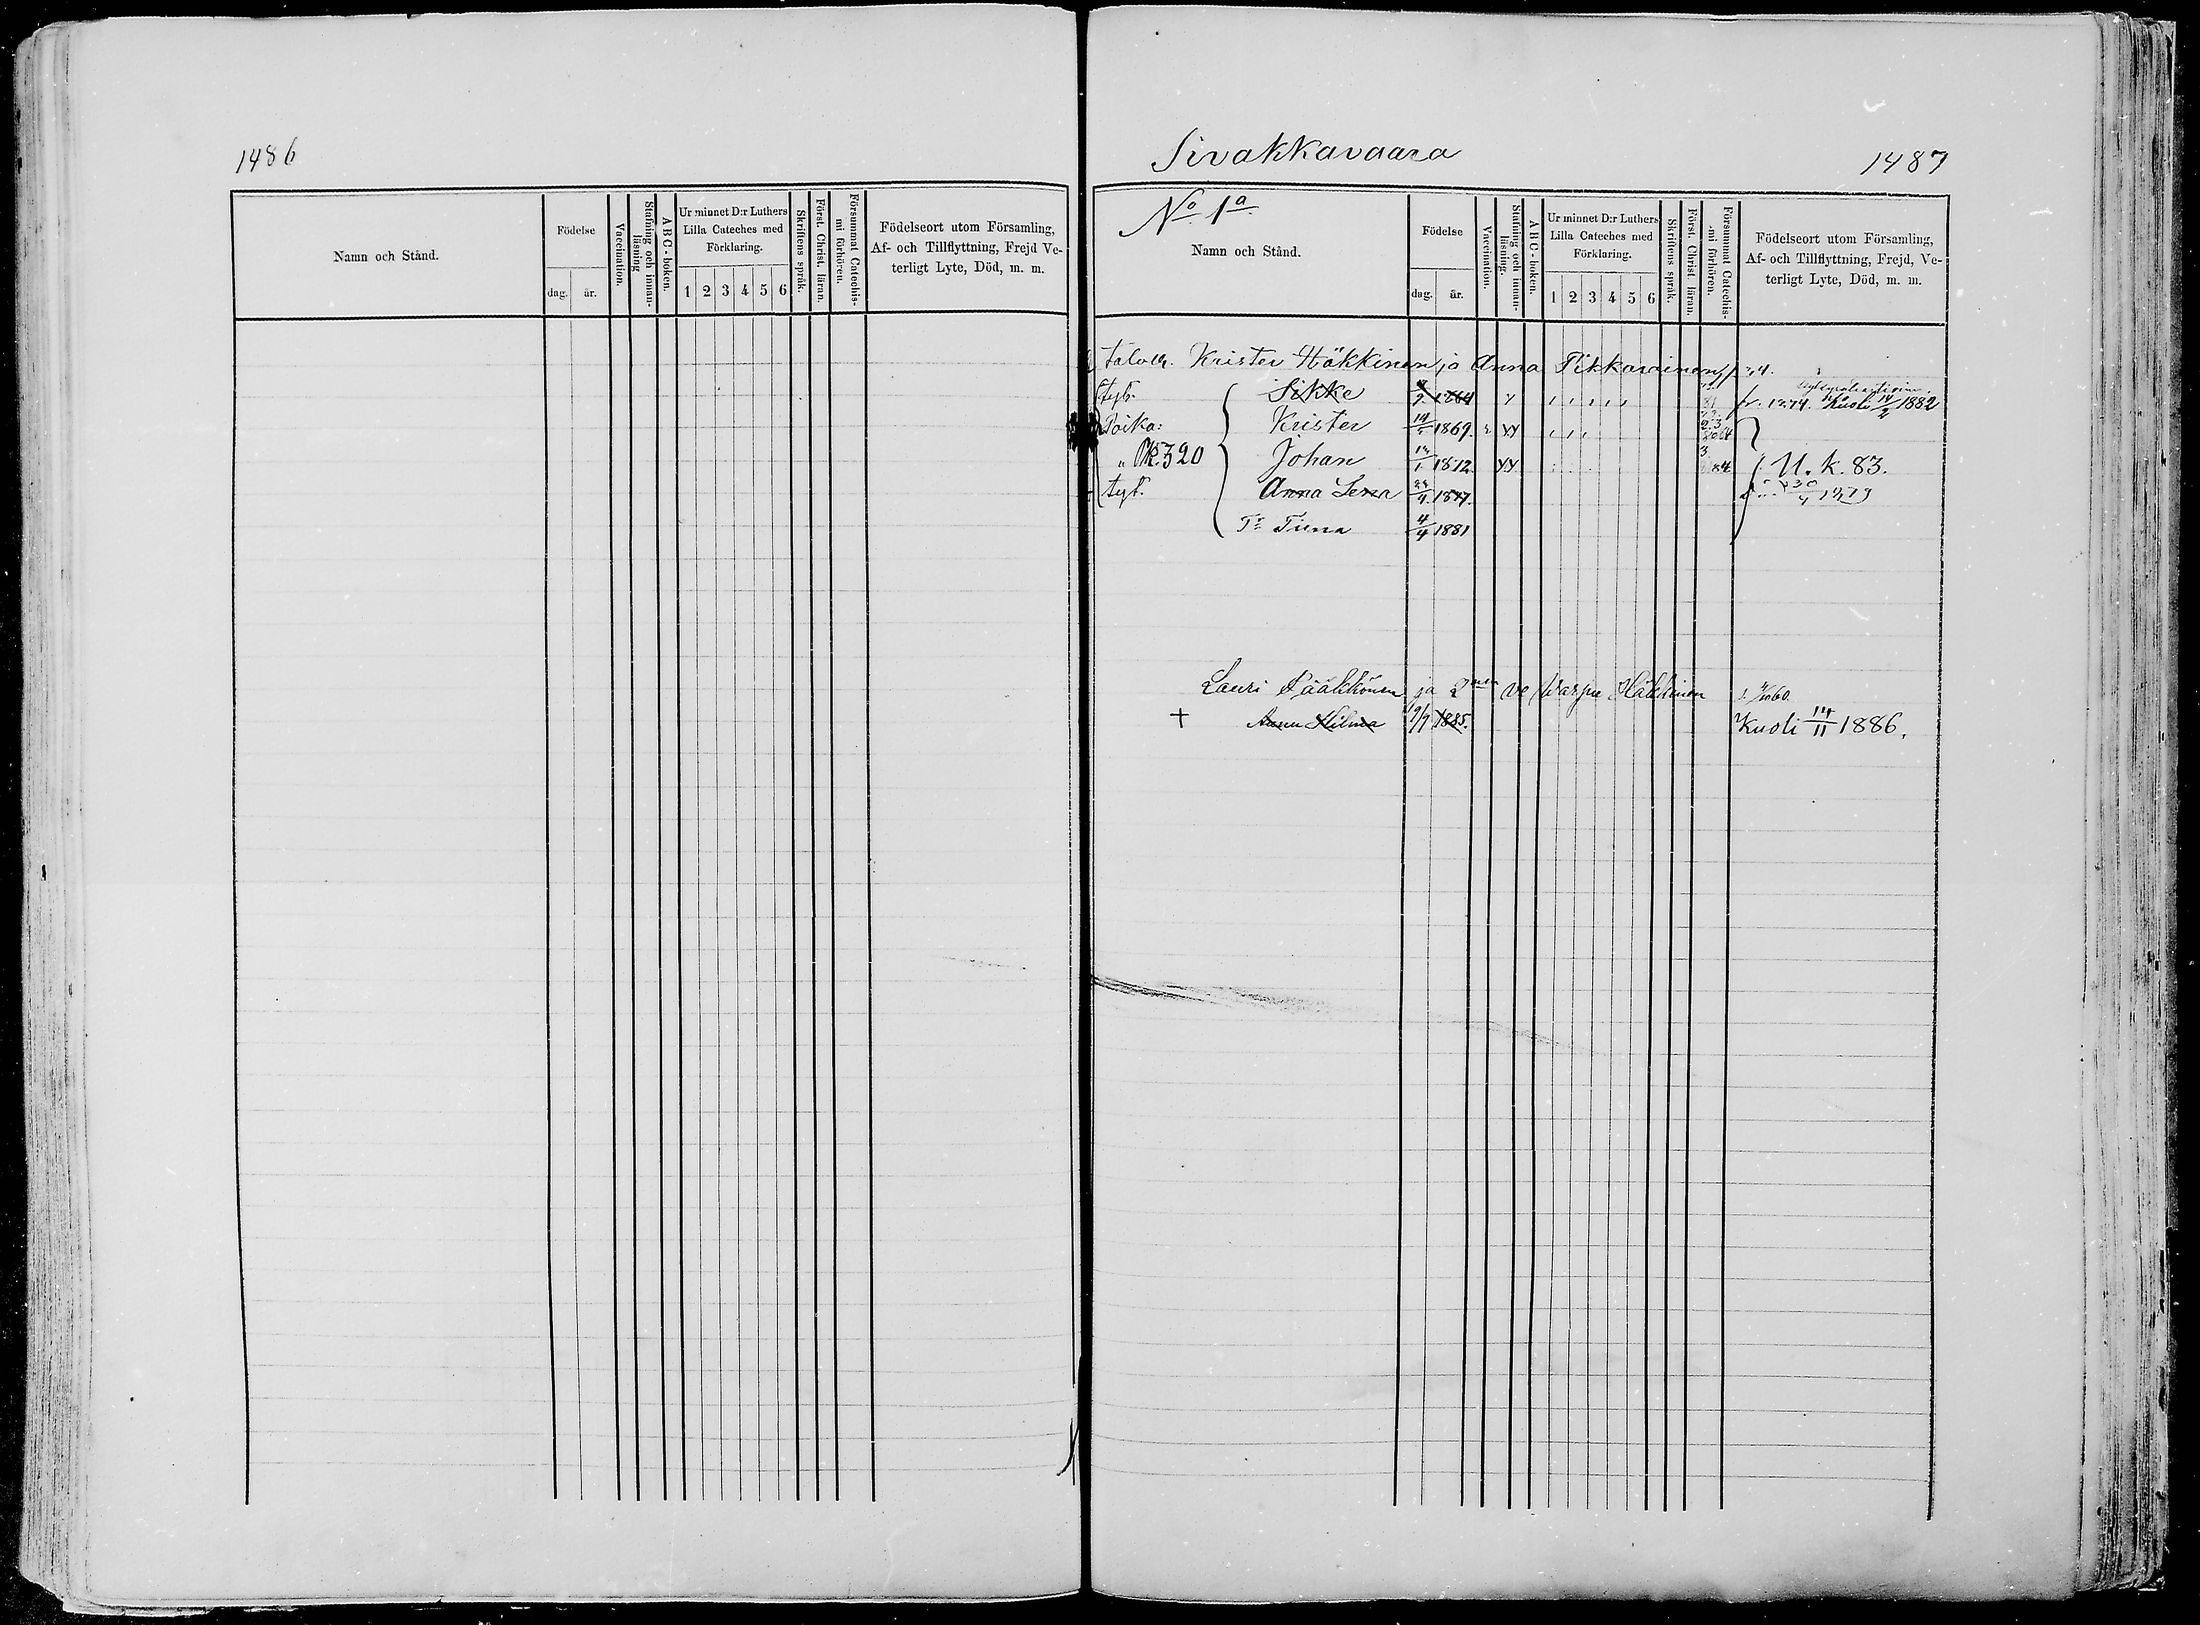 1486
Namn och Stånd.
Födelse
dag. år.
Vaccination.
Stafning och innan-läsning
ABC-boken.
Ur minnet D:r Luthers Lilla Cateches med Förklaring.
1 2 3 4 5 6
Skriftens språk.
Först. Christ. läran.
Försummat Catechis-mi förhören.
Födelseort utom Församling, Af- och Tillflyttning, Frejd Ve-terligt Lyte, Död, m. m.
Sivakkavaara 1487
No 1a
Namn och Stånd.
Födelse
dag. år.
Vaccination.
Stafning och innan-läsning.
ABC-boken.
Ur minnet D:r Luthers Lilla Cateches med Förklaring.
1 2 3 4 5 6
Skriftens språk.
Först. Christ. läran.
Försummat Catechis-mi förhören.
Födelseort utom Församling, Af- och Tillflyttning, Frejd, Ve-terligt Lyte, Död, m. m.
Krister Häkkinen ja Anna Tikkarainen
tyt. Sikke 1864 Kuoli 14/2 1882
Poika: Krister 1869.
" Rk. 320 Johan 1872. XX 84 U. k. 83.
tyt. Anna Lena 1877.
Tr Tiina 4/4 1881
Lauri Pääkkönen ja 2nen vo Warpu Häkkinen
+ Anna Hilma 9/9 1885. Kuoli 14/11 1886.